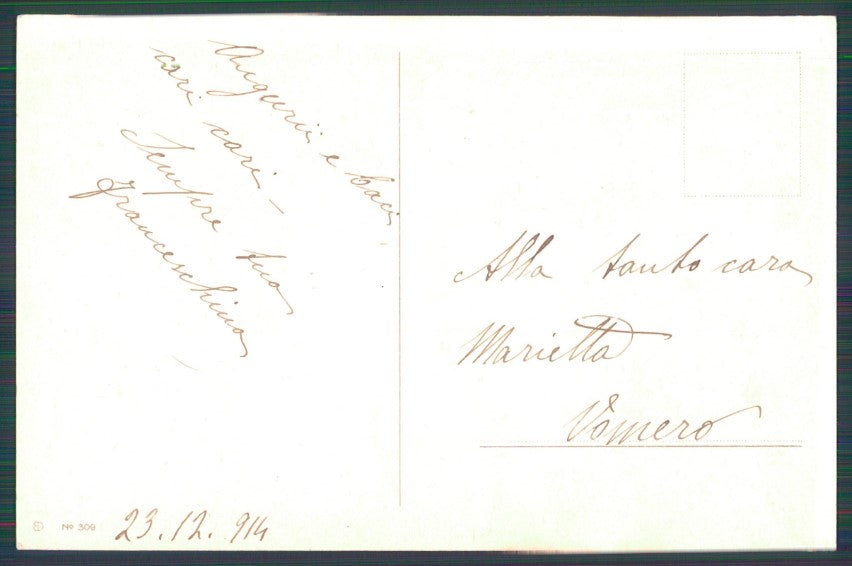 Augurii e baci
cari cari –
Sempre tua
Franceschina
Alla tanto cara
Marietta
Vomero
No 309
23.12.914